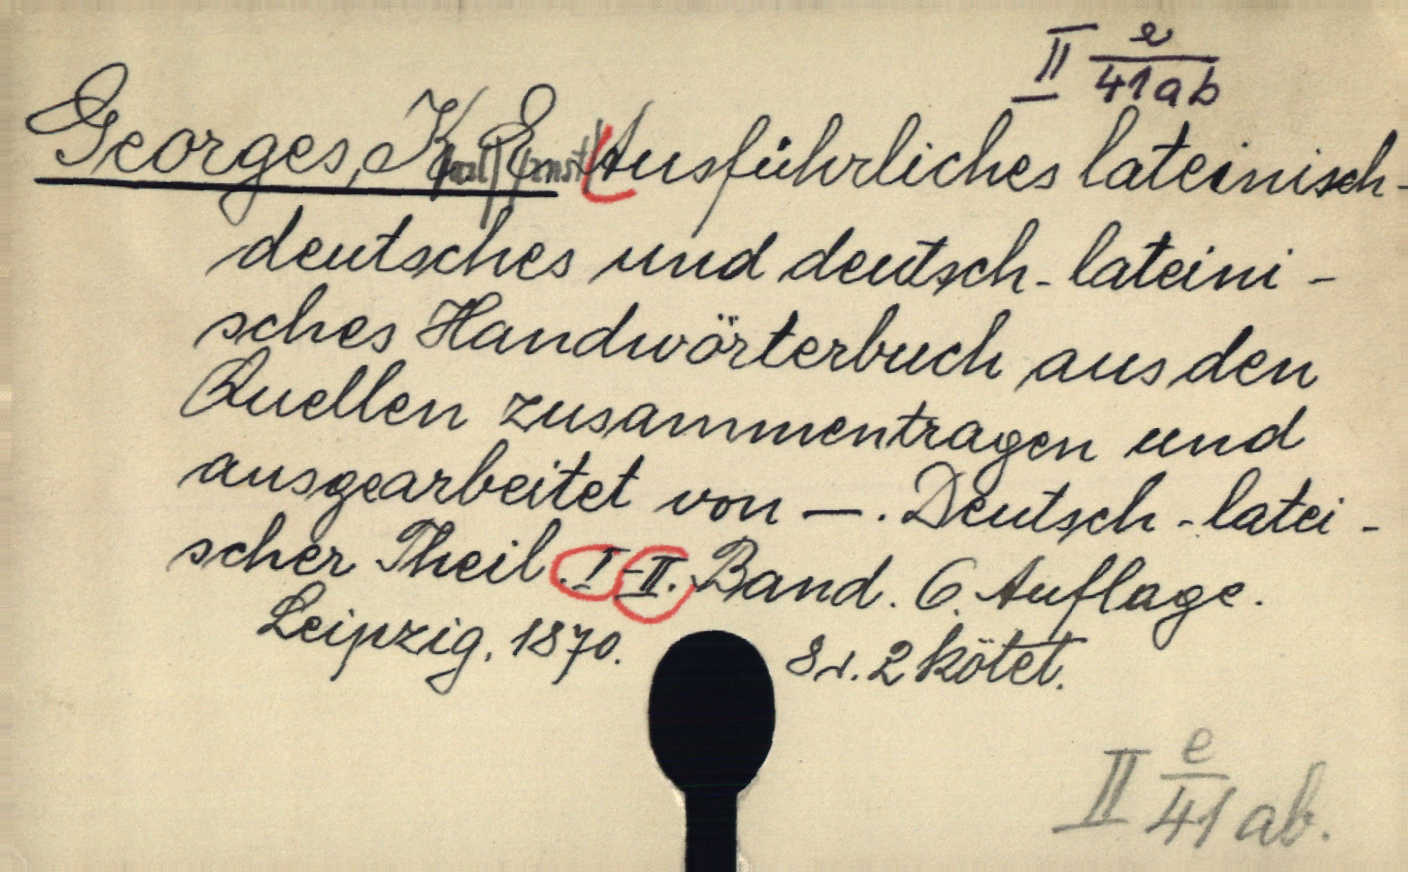 II e
41ab
Georges, Karl Ernst Ausführliches lateinisch-
deutsches und deutsch-lateini-
sches Handwörterbuch aus den
Quellen zusammentragen und
ausgearbeitet von —. Deutsch-latei-
scher Theil. I-II. Band. 6. Auflage.
Leipzig, 1870. 8r. 2 kötet.
II e
41 ab.